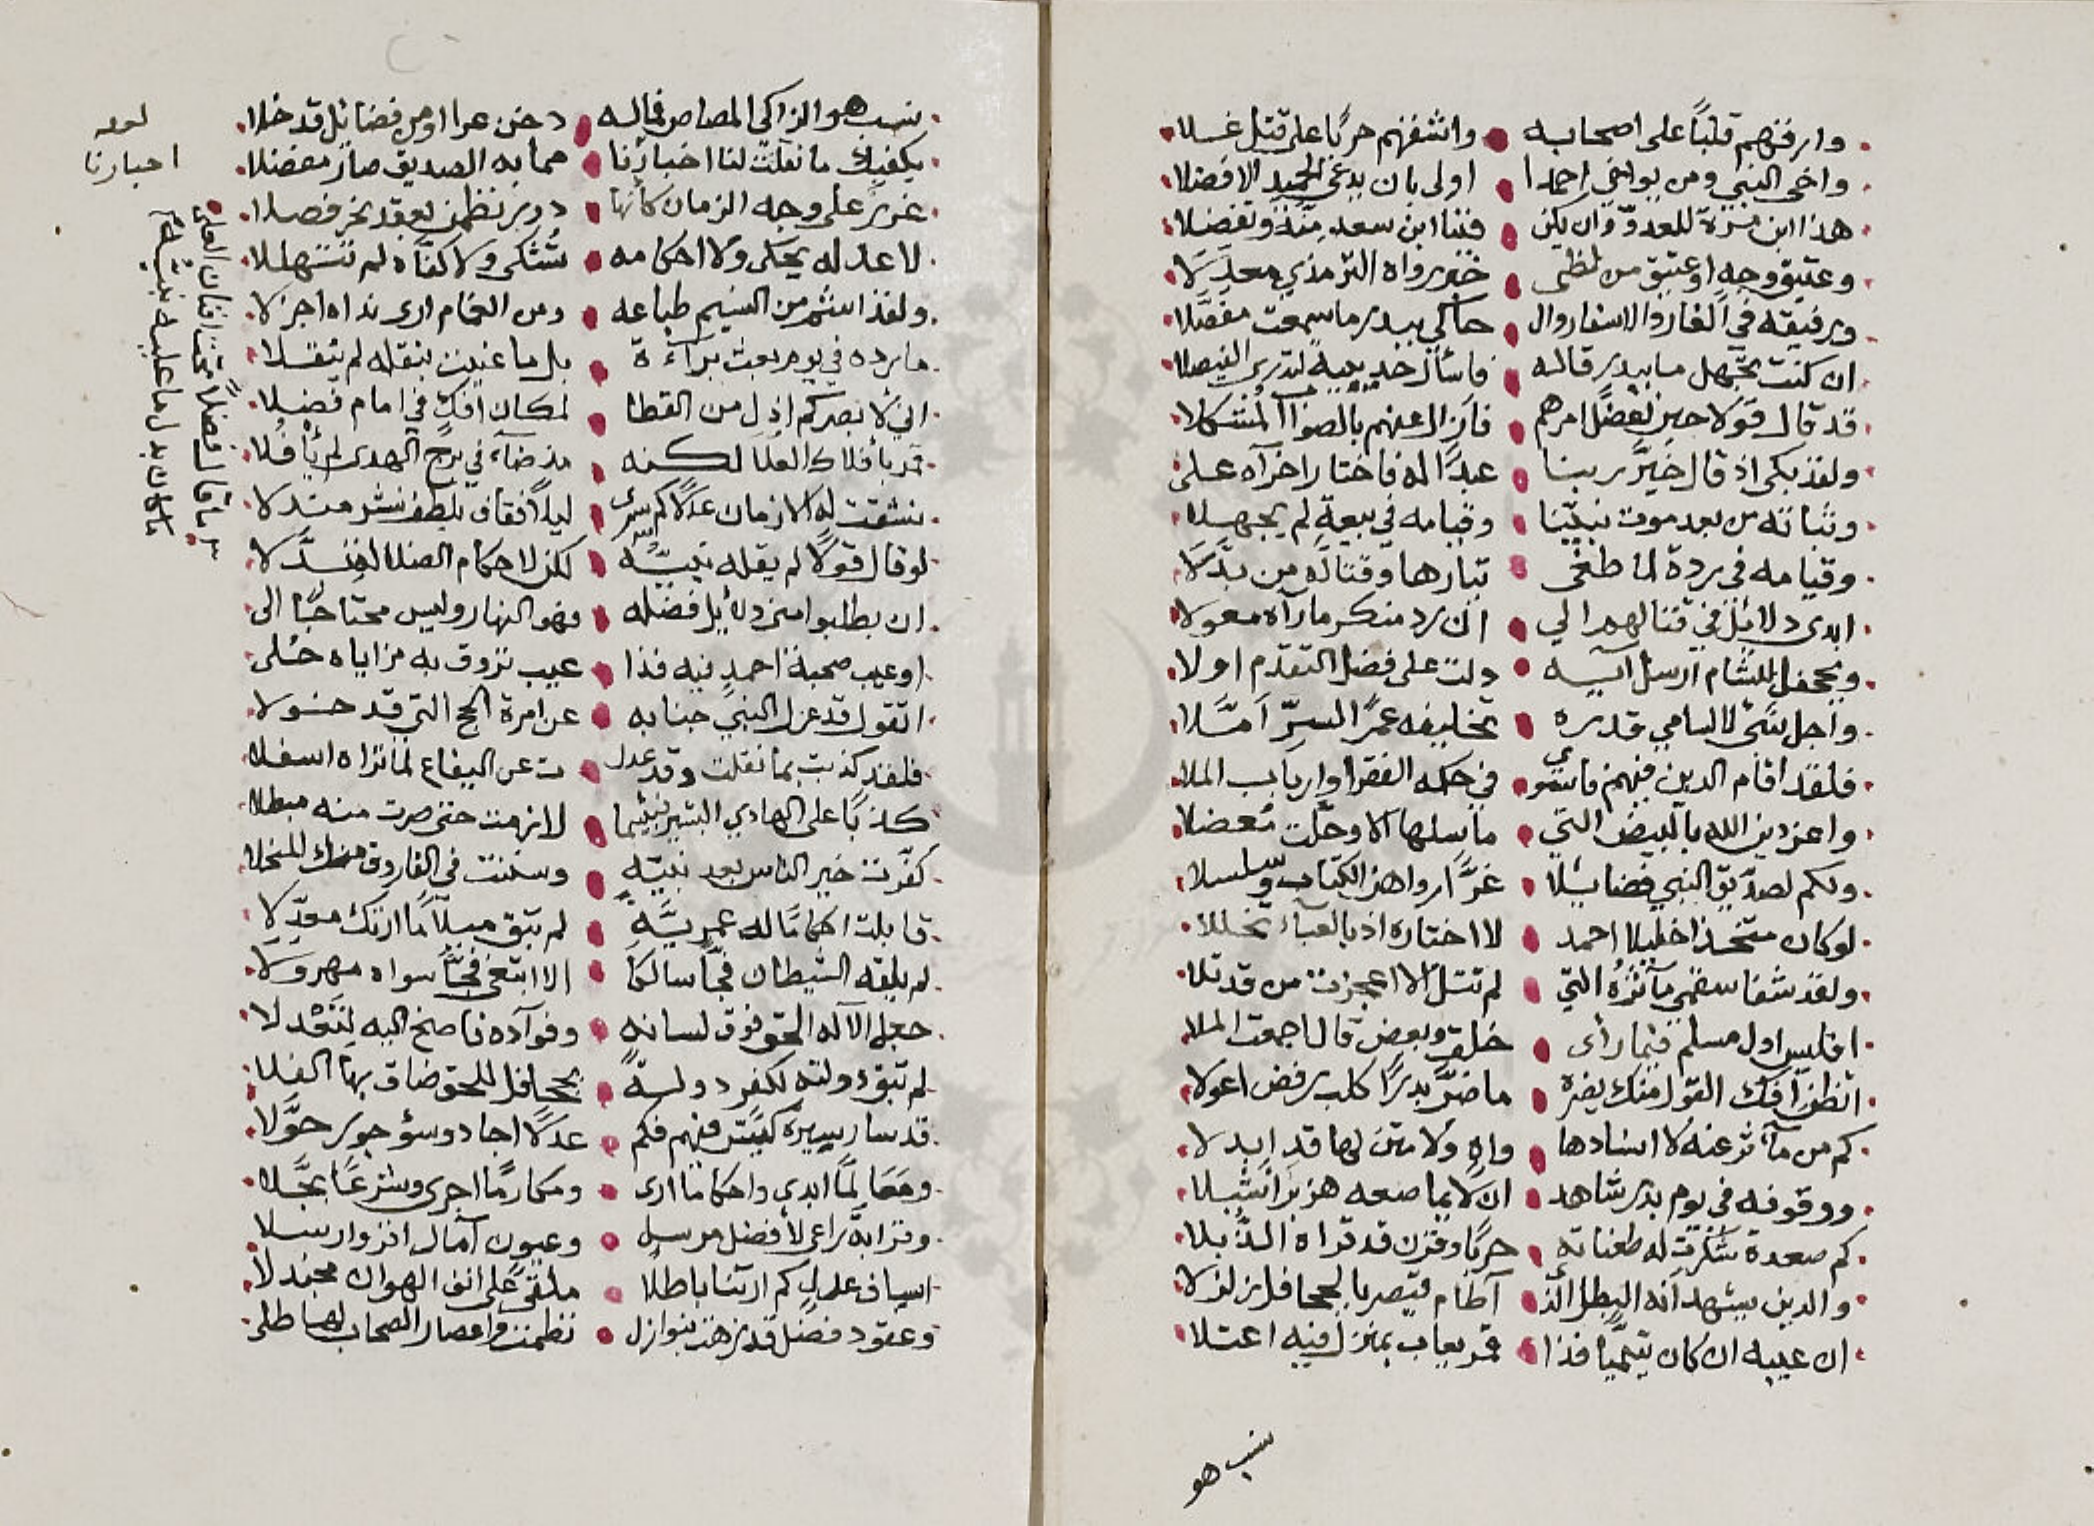 وارقهم قلباً على اصحابه واشفهم حربًا على قتل غلا
واخى النبي ومن يواخي احمدا اولى بان يدعى الحميد الافضلا
هذا ابن مرة للعدو وان يكن فينا ابن سعد منة وتفضلا
وعتيق وجه او عتيق من لظى خبر رواه الترمذي معدلا
ورفيقه في الغار والاسفار وال حاكي ببدر ما سمعت مفصّلا
ان كنت تجهل ما ببدر قاله فاسأل حديبية لتدري الفيصلا
قد قال قولا حين اعضل امرهم فازال عنهم بالصواب المشكلا
ولقد بكى اذ قال خيّر ربنا عبدًا له فاختار اخراه على
وثباته من بعد موت نبيّنا وقيامه في بيعةٍ لم يجهلا
وقيامه في ردة لما طغى تيارها وقتاله من بدّلا
ابدى دلائل في قتالهم الي ان رد منكر ما رآه معولا
وبجحفل للشام ارسل آيسه دلت على فضل التقدم اولا
واجل شئ لا السامي قدره تخليفه عمرًا السرّ امّلا
فلقد اقام الدين فيهم فاستوى في حكمه الفقرا وارباب الملا
واعز دين الله بالبيض التي ما سلها الا وحلّت مُعضلا
ولكم لصدّيق النبي فضائلا غرًّا رواهن الكتاب وسلسلا
لو كان متخذا خليلا احمد لاختاره اذ بالعباء تخللا
ولقد شفا سقمي مآثرُه التي لم تتل الا اعجزت من قد تلا
افليس اول مسلم فيما رأى خلق وبعض قال اجمعت الملا
اتظن افك القول منك يضره ما ضرّ بدرًا كلب رفض اعولا
كم من مآثر عنه لا اسنادها واهٍ ولا متن لها قد ابدلا
ووقوفه في يوم بدر شاهد ان لا يماصعه هزبر اشبلا
كم صعدة شكرت له طعناته حربًا وقرن قد قراه الذبلا
والدين يشهد انه البطل الذي آطام قيصر بالجحافل زلزلا
ان عيبه ان كان تيميًّا فذا قمر يعاب بمنزل فيه اعتلا
نسب هو
نسب هو الزاكي المصاص فما له دخن عرا او من فضائل قد خلا
يكفيك ما نقلت لنا اخبارنا مما به الصديق صار مفضلا
غرر على وجه الزمان كأنها درر نظمن بعقد نحر فصلا
لا عدله يحكى ولا احكامه تُشكى ولا كفاه لم تتهللا
ولقد اشم من النسيم طباعه ومن الغمام ارى نداه اجزلا
ما رده في يوم بعث برآءة بل ما عنيت بنقله لم ينقلا
اني لا بصركم اذل من القطا لمكان افك في امام فضلا
قمر بأفلاك العلا لكنه مذ ضاء في برج الهدى لم يأفلا
نشقت له الازمان عدلا كم سرى ليلاً فقاف بلطف نشر مندلا
لو قال قولًا لم يقله نبيّه لكن لاحكام الضلال سدّلا
ان يطلبوا من دلائل فضله فهو النهار وليس محتاجًا الى
او عيب صحبة احمد فيه فذا عيب تروق به مزاياه حلى
اتقول قد عزل النبي جنابه عن امرة الحج التي قد خولا
فلقد كذبت بما نقلت وقد عدل ت عن اليفاع لما تراه اسفلا
كذبًا على الهادي البشير نبينا لازمت حتى صرت منه مبطلا
كفّرت خير الناس بعد نبيّه وسكنت في الفاروق منك المنحلا
قابلت احكامًا له عمريّةً لم تبق ميلاً ما ارتك معدّلا
لم يلقه الشيطان فجًّا سالكًا الا ابتغى فجًّا سواه مهرولا
جعل الاله الحق فوق لسانه وفوآده فاصخ اليه لتعدلا
لم تبق دولته لكفر دولةً بجحافل للحق ضاق بها الفلا
قد سار سيرة كيّس فيهم فكم عدلا اجاد وسؤ جور حوّلا
ومعالمًا ابدى واحكاما ارى ومكارمًا اجرى وشرعًا بجّلا
وقرابة راعى لافضل مرسل وعيون آمال اقر وارسلا
اسياف عدل كم ارتنا باطلا ملقى على انف الهوان مجندلا
وعقود فضل قد زهت بنوازل نظمت فراعصار الصحاب لها طلى
لعله
اخبارنا